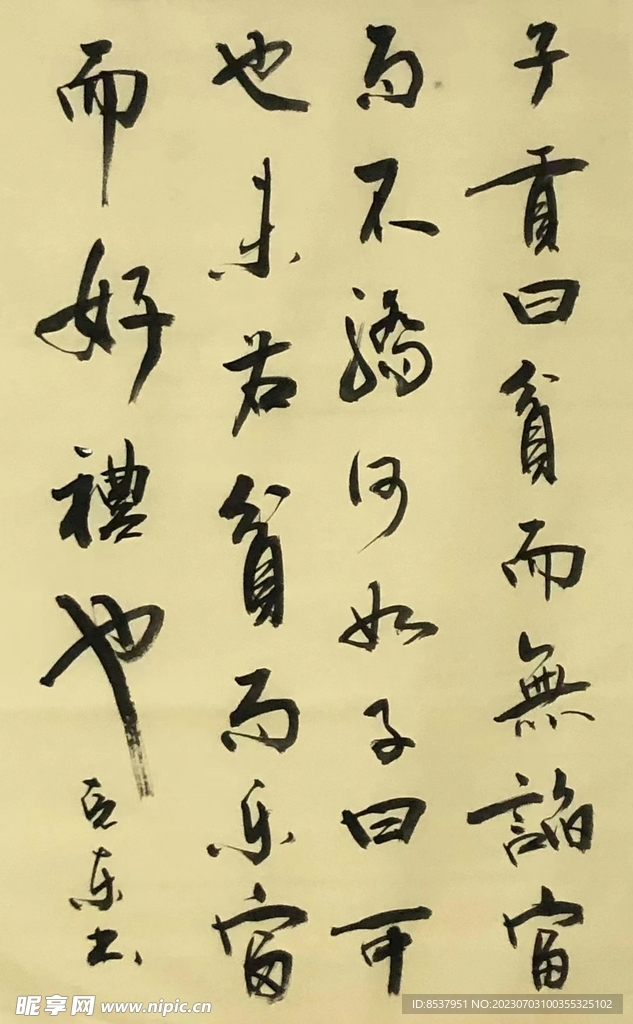 子貢曰貧而無諂富
而不驕何如子曰可
也未若貧而乐富
而好禮也
东书
昵享网 www.nipic.cn
ID:8537951 NO:20230703100355325102